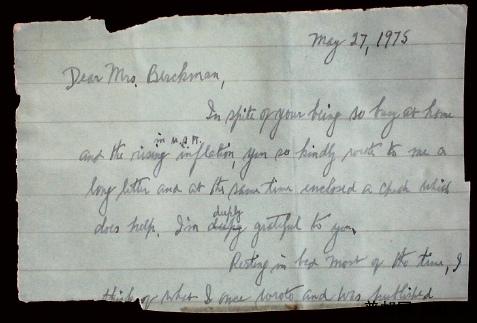 May 27, 1975
Dear Mrs. Berkman,
In spite of your being so busy at home
in U.S.A.
and the rising inflation, you so kindly wrote to me a
long letter and at the same time enclosed a check which
deeply
does help. I'm deeply grateful to you.
Resting in bed most of the time, I
think of what I once wrote and was published